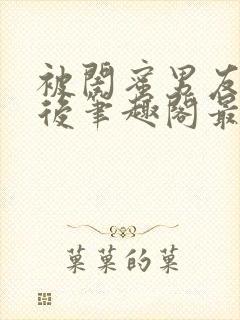 被閨蜜男友
後筆趣閣最
菓菓的菓